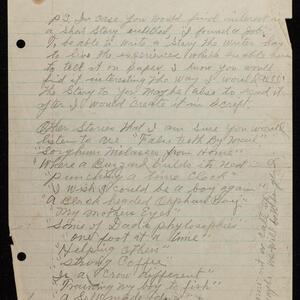 P.S. In case you would find interest in
a Short Story entitled "I found a Job.
To be able to write a Story the writer
to live the experiences which enables
to tell it on paper I know you would
find it interesting the way I would
the Story to you Maybe also to read it
after I would create it in script.
Other Stories that I am sure you would
listen to are "False teeth By Mail"
"Sorghum Molasses from Home"
"Where a Buzzard builds its nest"
"Punching a time Clock"
"I wish I could be a boy again"
"A Black headed Orphan Boy"
"My mothers Eyes"
"Some of Dad's phylosophies"
"one foot at a time"
"Helping others"
"Strong Coffee"
"Is a Crow different"
"Training my boy to fish"
"A Self made